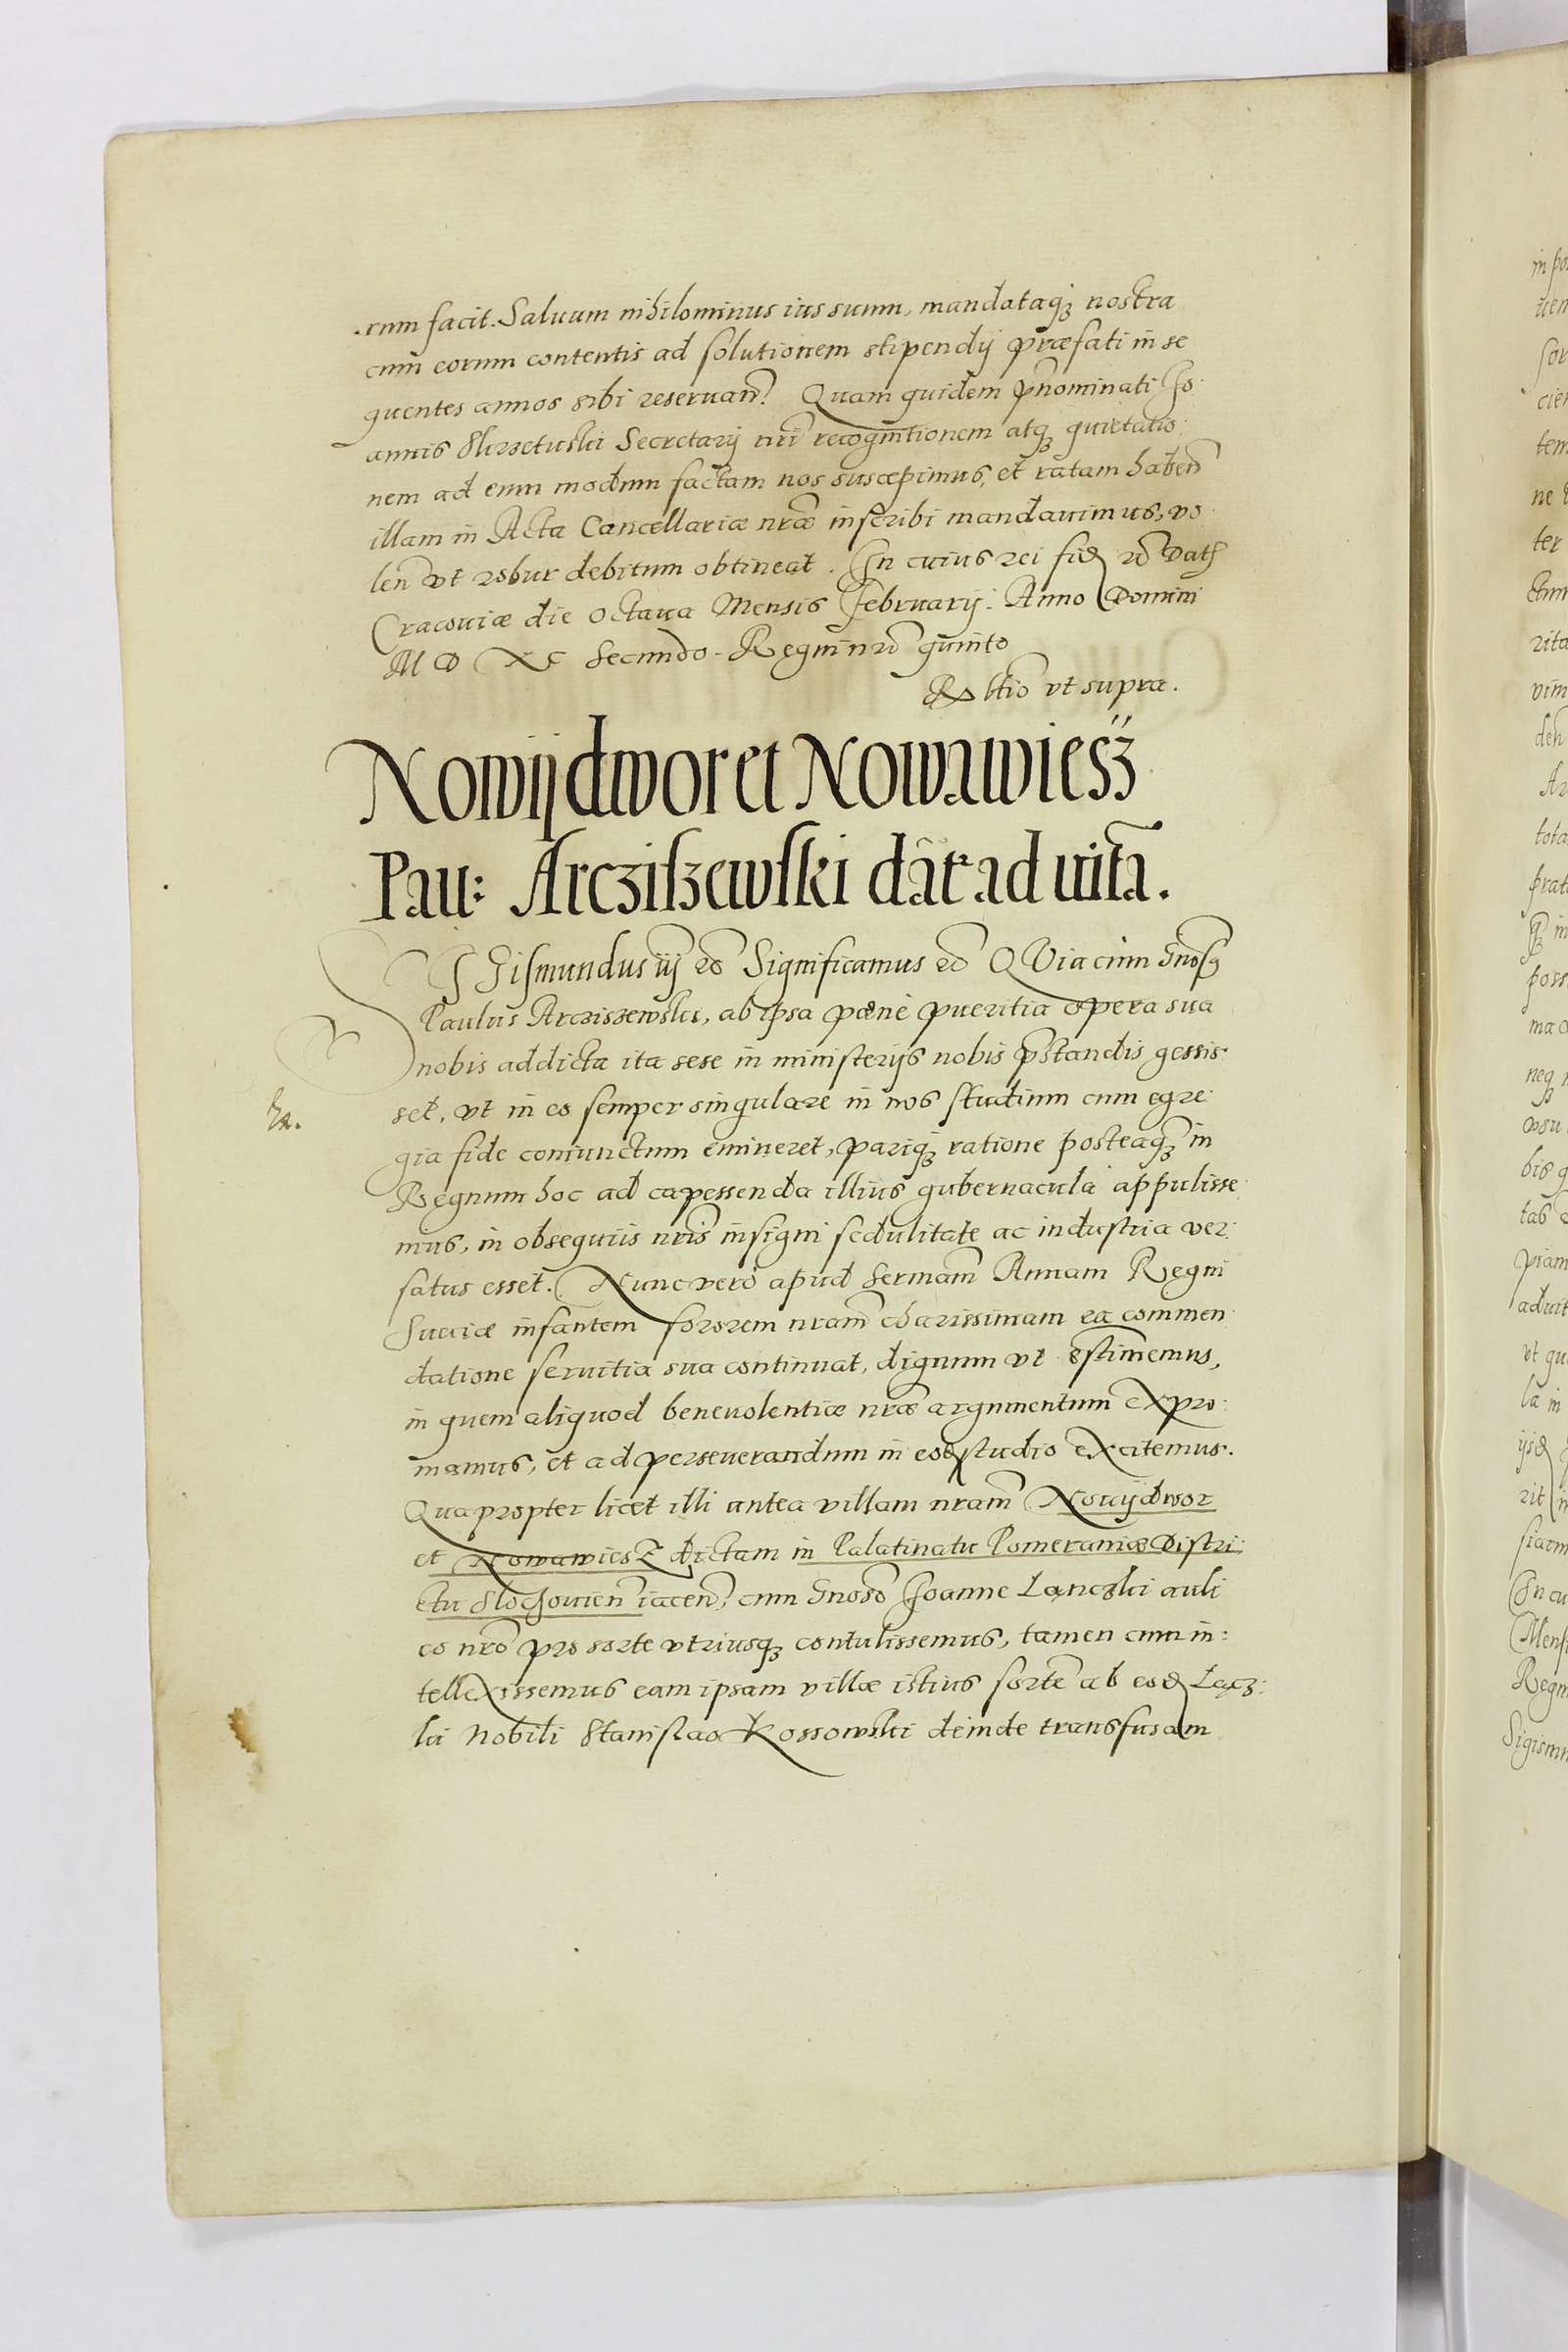 .rum facit. Saluum nihilominus ius suum, mandataq; nostra
cum eorum contentis ad solutionem stipendij præfati in se
quentes annos sibi reseruan̄. Quam quidem p̄nominati Jo:
annis Skrzetuski Secretarij nr̄i recognitionem atq; quietatio:
nem ad eum modum factam nos suscepimus, et ratam haben̄
illam in Acta Cancellariæ nr̄æ inscribi mandauimus, vo
len̄ vt robur debitum obtineat. In cuius rei fid
Cracouiæ die Octaua Mensis Februarij. Anno Domini
M D XC Secundo. Regni nr̄i quinto
Rltio vt supra.
Nowijdwor et Nowawiesz
Pau: Arcziszewski dat̄ ad uitā.
SIGismundus iij Significamus QVia cum Gnos
Paulus Arcziszewski, ab ipsa pæne pueritia opera sua
nobis addicta ita sese in ministerijs nobis p̄standis gessis:
set, vt in eo semper singulare in nos studium cum egre:
gia fide coniunctum emineret, pariq; ratione posteaq; in
Regnum hoc ad capessenda illius gubernacula appulisse:
mus, in obsequiis nr̄is insigni sedulitate ac industria ver:
satus esset. Nunc vero apud Sermam̄ Annam Regni
Sueciæ infantem sororem nram̄ charissimam ea commen:
datione seruitia sua continuat, dignum vt æstimemus,
in quem aliquod beneuolentiæ nr̄æ argumentum expro:
mamus, et ad perseuerandum in eod studio excitemus.
Quapropter licet illi antea villam nram̄ Nowijdwor
et Nowawiesz dictam in Palatinatu Pomeraniæ Distri:
ctu Slochouien̄ iacen̄, cum Gnoso Joanne Lanczki auli
co nr̄o pro sorte vtriusq; contulissemus, tamen cum in:
tellexissemus eam ipsam villæ istius sortē ab eod Lącz:
ki Nobili Stanislao Kossowski deinde transfusam